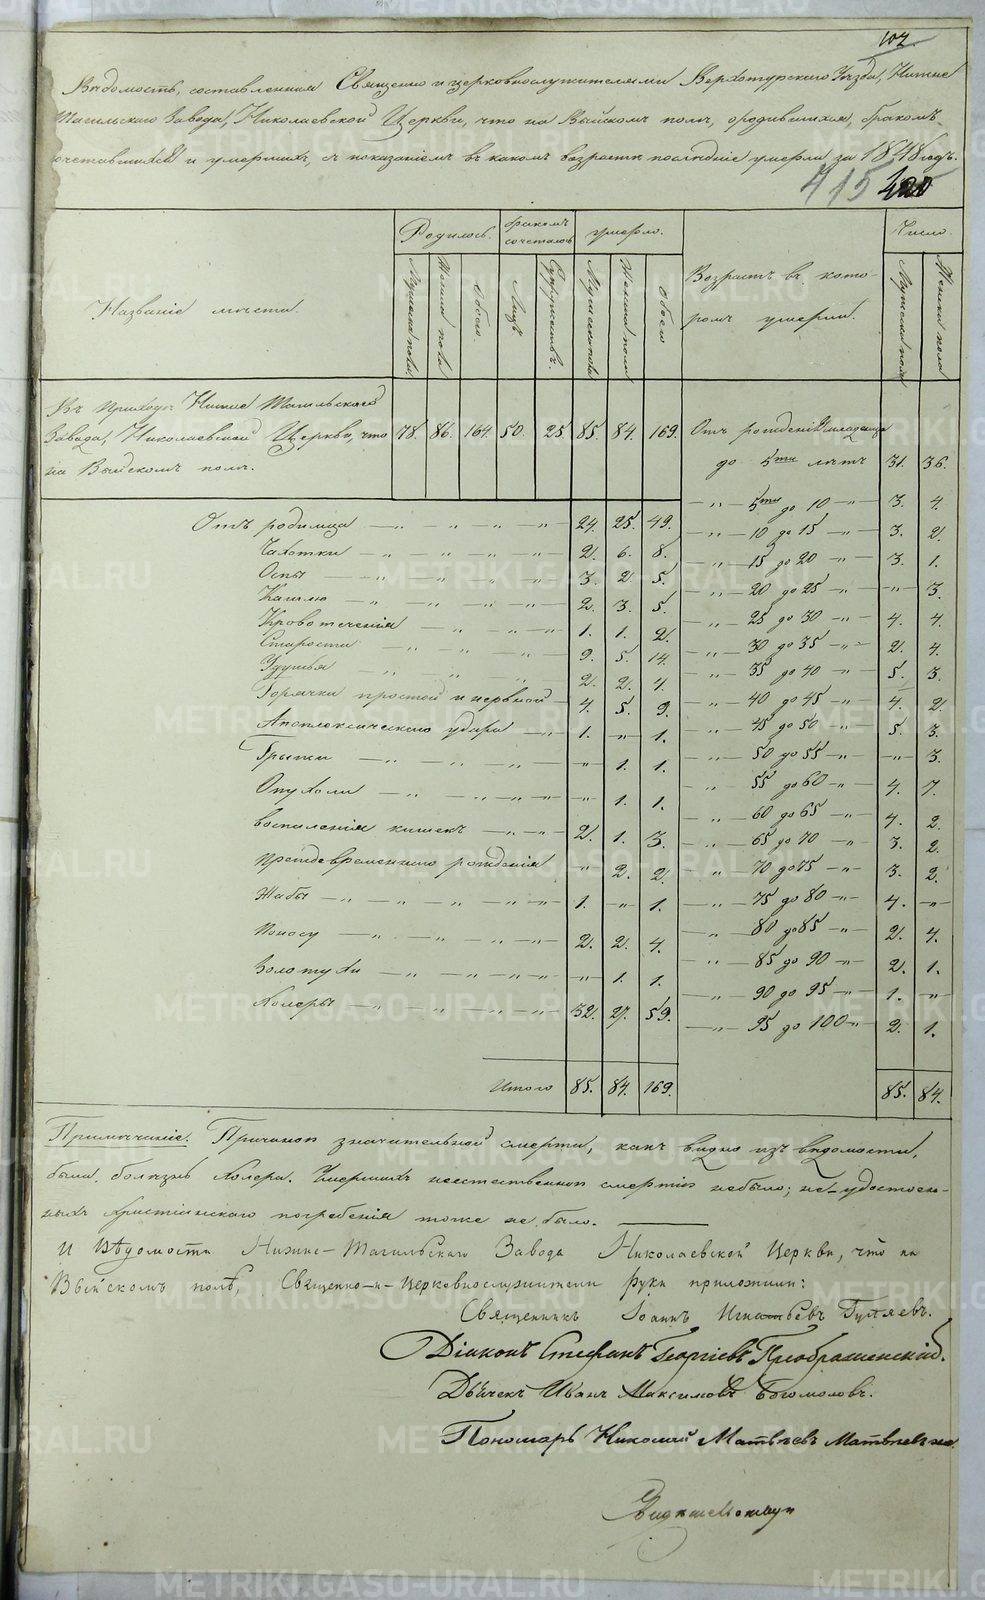 102.
Вѣдомость, составленная Священно и церковнослужителями Верхотурскаго Уѣзда, Нижне
Тагильскаго Завода, Николаевской Церкви, что на Выйскомъ полѣ, о родившихся, бракомъ
сочетавшихся и умершихъ, съ показаніемъ въ какомъ возрастѣ послѣдніе умерли за 1848 годъ.
415
Названіе мѣста.
Родилось.
бракомъ сочеталось
умерло.
Возрастъ въ кото-
ромъ умерли.
Число.
Мужеска пола
Женска пола
Обоего.
Лицъ
Супружествъ.
Мужеска пола
Женска пола
Обоего
Мужеска пола
Женска пола
Въ Приходѣ Нижне Тагильскаго
Завода, Николаевской Церкви, что
на Выйскомъ полѣ.
78. 86. 164. 50. 25. 85. 84. 169.
Отъ рожденія младенца
до 5ти лѣтъ 31. 36.
„ 5ти до 10 „ 3. 4.
„ 10 до 15 „ 3. 2.
„ 15 до 20 „ 3. 1.
„ 20 до 25 „ „ 3.
„ 25 до 30 „ 4. 4.
„ 30 до 35 „ 2. 4.
„ 35 до 40 „ 5. 3.
„ 40 до 45 „ 4. 2.
„ 45 до 50 „ 5. 3.
„ 50 до 55 „ „ 3.
„ 55 до 60 „ 4. 7.
„ 60 до 65 „ 4. 2.
„ 65 до 70 „ 3. 2.
„ 70 до 75 „ 3. 2.
„ 75 до 80 „ 4. „
„ 80 до 85 „ 2. 4.
„ 85 до 90 „ 2. 1.
„ 90 до 95 „ 1. „
„ 95 до 100 „ 2. 1.
85. 84.
Отъ родимца 24. 25. 49.
Чахотки 2. 6. 8.
Оспы 3. 2. 5.
Кашлю 2. 3. 5.
Кровотеченія 1. 1. 2.
Старости 9. 5. 14.
Удушья 2. 2. 4.
Горячки простой и нервной 4. 5. 9.
Апоплексическаго удара 1. „ 1.
Грыжи „ 1. 1.
Опухоли „ 1. 1.
воспаленія кишекъ 2. 1. 3.
Преждевременнаго рожденія „ 2. 2.
Жабы 1. „ 1.
Поносу 2. 2. 4.
Золотухи „ 1. 1.
Холеры 32. 27. 59.
Итого 85. 84. 169.
Примѣчаніе. Причиной значительной смерти, какъ видно изъ вѣдомости,
была болѣзнь Холера. Умершихъ неестественной смертію небыло; не удостоен-
ныхъ христіанскаго погребенія тоже не было.
И Вѣдомости Нижне-Тагильскаго Завода Николаевской Церкви, что на
Выйскомъ полѣ, Священно-и-Церковнослужители руки приложили:
Священникъ Іоаннъ Игнатьевъ Гуляевъ.
Діаконъ Стефанъ Георгіевъ Преображенскій.
Дьячекъ Иванъ Максимовъ Богомоловъ.
Пономарь Николай Матвѣевъ
METRIKI.GASO-URAL.RU